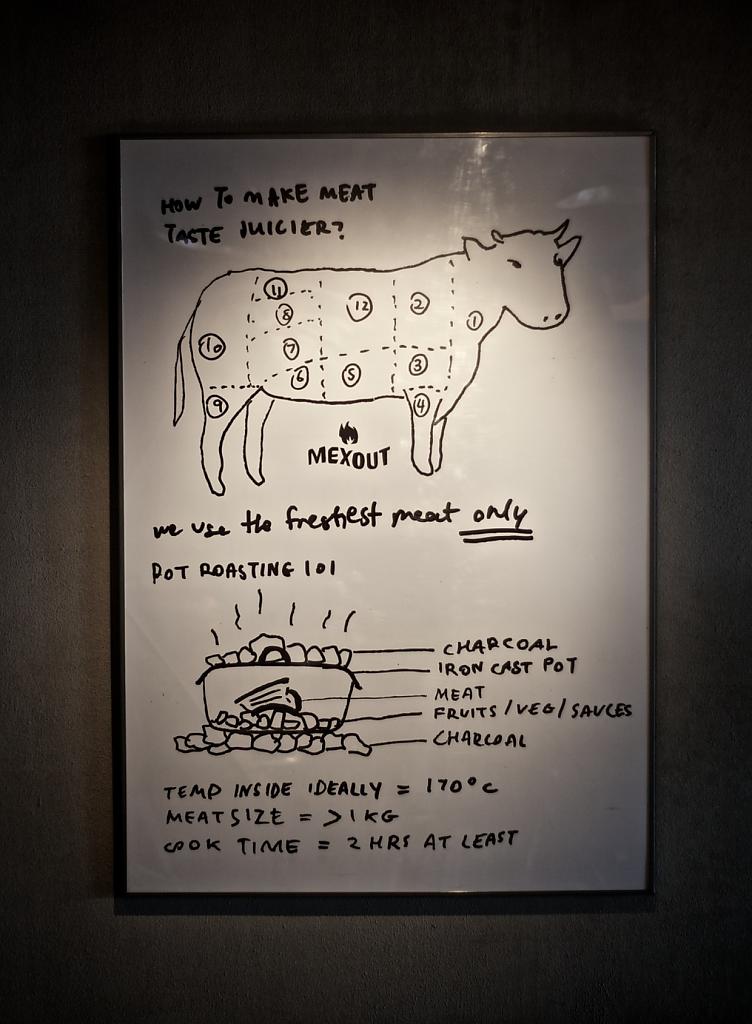 HOW TO MAKE MEAT
TASTE JUICIER?
11
8
12
2
1
10
7
6
5
3
9
4
MEXOUT
we use the freshest meat only
POT ROASTING 101
CHARCOAL
IRON CAST POT
MEAT
FRUITS / VEG / SAUCES
CHARCOAL
TEMP INSIDE IDEALLY = 170°C
MEAT SIZE = > 1 KG
COOK TIME = 2 HRS AT LEAST